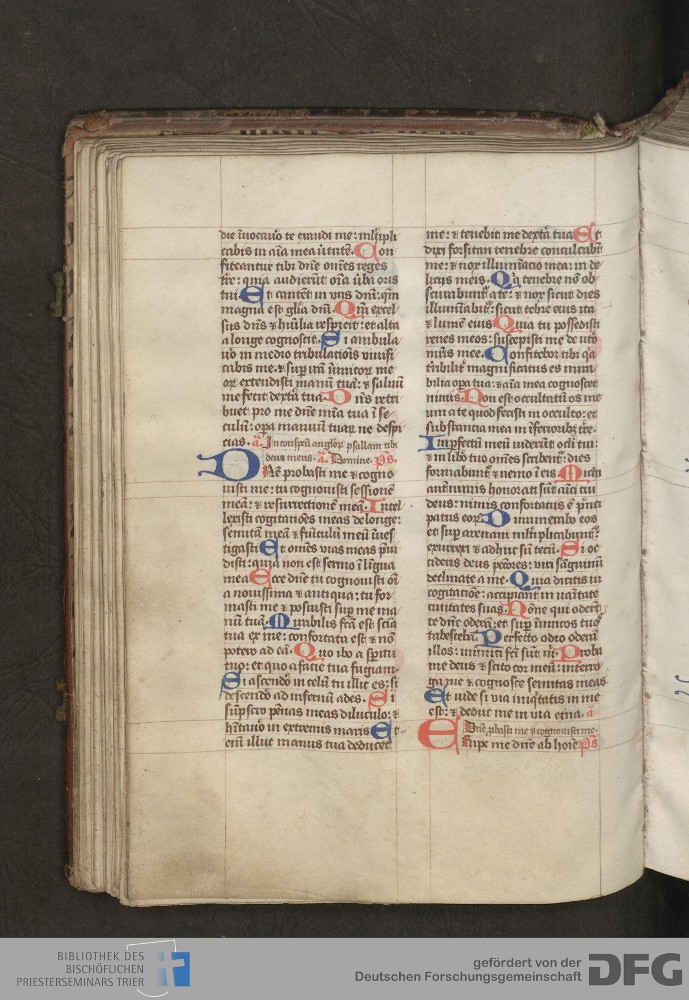 die īuocauo te exaudi me: mltipli
cabis in aīa mea ūtutē. Con
fiteantur tibi dn̄e om̄es reges
tr̄e: quia audierūt oīa ūba oris
tui. Et cantēt in vijs dn̄i: qm̄
magna est gl̄ia dn̄i. Qm̄ excel
sus dn̄s & hūilia respicit: et alta
a longe cognoscit. Si ambula
uo in medio tribulatiōis viuifi
cabis me: & sup irā inimicoꝝ me
oꝝ extendisti manū tuā: & saluū
me fecit dextā tua. Dn̄s retri
buet pro me dn̄e mīa tua ī se
culū: opa manuū tuaꝝ ne despi
cias. a. In conspcū angloꝝ psallam tibi
deus meus. a. Domine. ps.
Dn̄e probasti me & cogno
uisti me: tu cognouisti sessionē
meā: & resurrectionē meā. Intel
lexisti cogitatiōes meas de longe:
semitā meā & funiculū meū īues
tigasti. Et om̄es vias meas p̄ui
disti: quia non est sermo ī līgua
mea. Ecce dn̄e tu cognouisti oīa
nouissima & antiqua: tu for
masti me & posuisti sup me ma
nū tuā. Mirabilis fca est sciā
tua ex me: confortata est & nō
potero ad eā. Quo ibo a spū
tuo: et quo a facie tua fugiam.
Si ascendō in celū tu illic es: si
descendō ad infernū ades. Si
sūpsero pēnas meas diluculo: &
hītauo in extremis maris. Et
eniī illuc manus tua deducet
me: & tenebit me dextā tua. Et
dixi forsitan tenebre conculcabūt
me: & nox illumīacio mea: in de
licijs meis. Qa tenebre nō ob
scurabunt a te: & nox sicut dies
illumīabit: sicut tebre eius ita
& lumē eius. Quia tu possedisti
renes meos: suscepisti me de uto
mr̄is mee. Confitebor tibi qa
tribilit magnificatus es mira
bilia opa tua: & aīa mea cognoscet
nimis. Non est occultatū os me
um a te quod fecisti in occulto: et
substantia mea in īferiorib tr̄e.
Inpfectū meū uiderūt oc̄li tui:
& in libo tuo om̄es scribent: dies
formabunt & nemo ī eis. Michi
aut nimis honorati sūt amici tui
deus: nimis confortatus ē pnci
patus eoꝝ. Dinumerabo eos
et sup arenam mltiplicabunt:
exurrexi & adhuc sū tecū. Si oc
cideris deus pccores: viri sanguinū
declinate a me. Quia dicitis in
cogitatiōe: accipiant in uaītate
ciuitates suas. Nōne qui oderūt
te dn̄e oderā: et sup inimicos tuos
tabescebā. Perfecto odio oderā
illos: inimici fci sūt m. Proba
me deus & scito cor meū: interro
ga me & cognosce semitas meas.
Et uide si via iniqtatis in me
est: & deduc me in via etna. a
Dn̄e pbasti me & cognouisti me.
Eripe me dn̄e ab hoīe ps
BIBLIOTHEK DES
BISCHÖFLICHEN
PRIESTERSEMINARS TRIER
gefördert von der
Deutschen Forschungsgemeinschaft
DFG